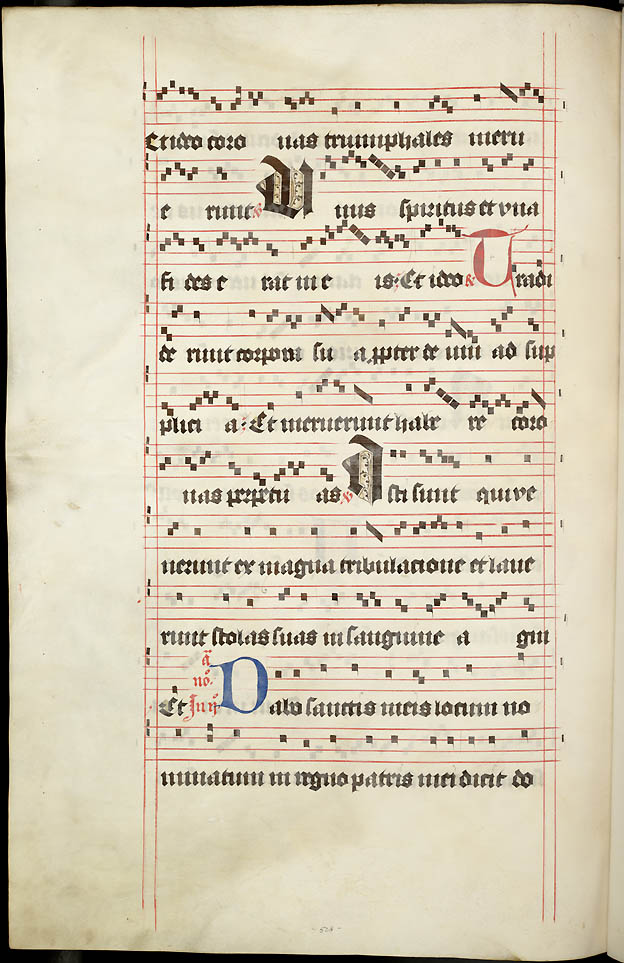 Et ideo coro nas triumphales meru
e runt ℣ Unus spiritus et vna
fi des e rat in e is: Et ideo ℟ Tradi
de runt corpora su a ppter de um ad sup
plici a: Et meruerunt habe re coro
nas perpetu as ℣ Isti sunt qui ve
nerunt ex magna tribulacione et laue
runt stolas suas in sanguine a gni
Et Dabo sanctis meis locum no
minatum in regno patris mei dicit do